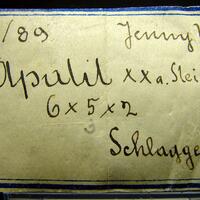 /89 Jenny
Apatit xx a. Stei
6 x 5 x 2
Schlagge